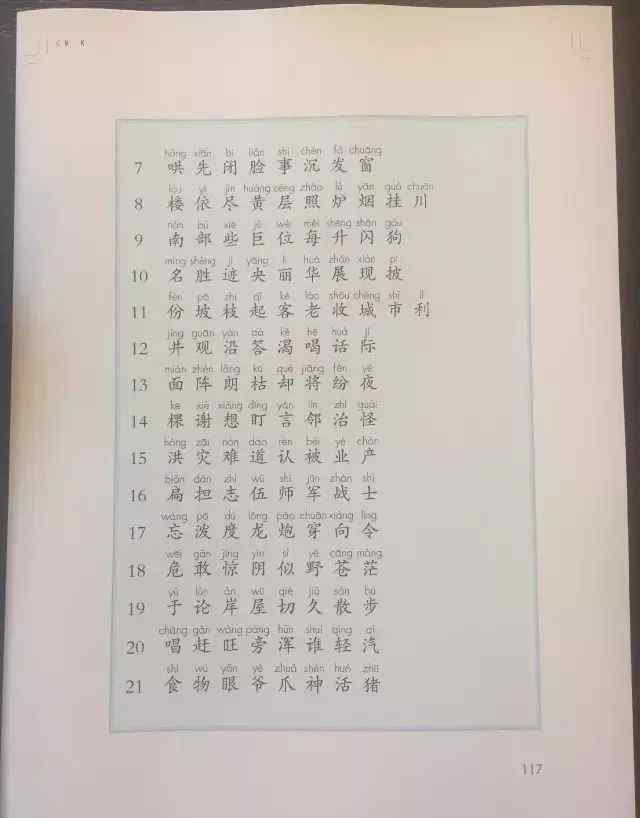 hōng xiān bì liǎn shì chén fā chuāng
7 哄 先 闭 脸 事 沉 发 窗
lóu yī jìn huáng céng zhào lú yān guà chuān
8 楼 依 尽 黄 层 照 炉 烟 挂 川
nán bù xiē jù wèi měi shēng shǎn gǒu
9 南 部 些 巨 位 每 升 闪 狗
míng shèng jì yāng lì huá zhǎn xiàn pī
10 名 胜 迹 央 丽 华 展 现 披
fèn pō zhī qǐ kè lǎo shōu chéng shì lì
11 份 坡 枝 起 客 老 收 城 市 利
jǐng guān yán dá kě hē huà jì
12 井 观 沿 答 渴 喝 话 际
miàn zhèn lǎng kū què jiāng fēn yè
13 面 阵 朗 枯 却 将 纷 夜
kē xiè xiǎng dīng yán lín zhì guài
14 棵 谢 想 盯 言 邻 治 怪
hóng zāi nán dào rèn bèi yè chǎn
15 洪 灾 难 道 认 被 业 产
biǎn dan zhì wǔ shī jūn zhàn shì
16 扁 担 志 伍 师 军 战 士
wàng pō dù lóng pào chuān xiàng lìng
17 忘 泼 度 龙 炮 穿 向 令
wēi gǎn jīng yīn sì yě cāng máng
18 危 敢 惊 阴 似 野 苍 茫
yú lùn àn wū qiè jiǔ sàn bù
19 于 论 岸 屋 切 久 散 步
chàng gǎn wàng páng hún shuí qīng qì
20 唱 赶 旺 旁 浑 谁 轻 汽
shí wù yǎn yé zhuǎ shén huó zhū
21 食 物 眼 爷 爪 神 活 猪
117